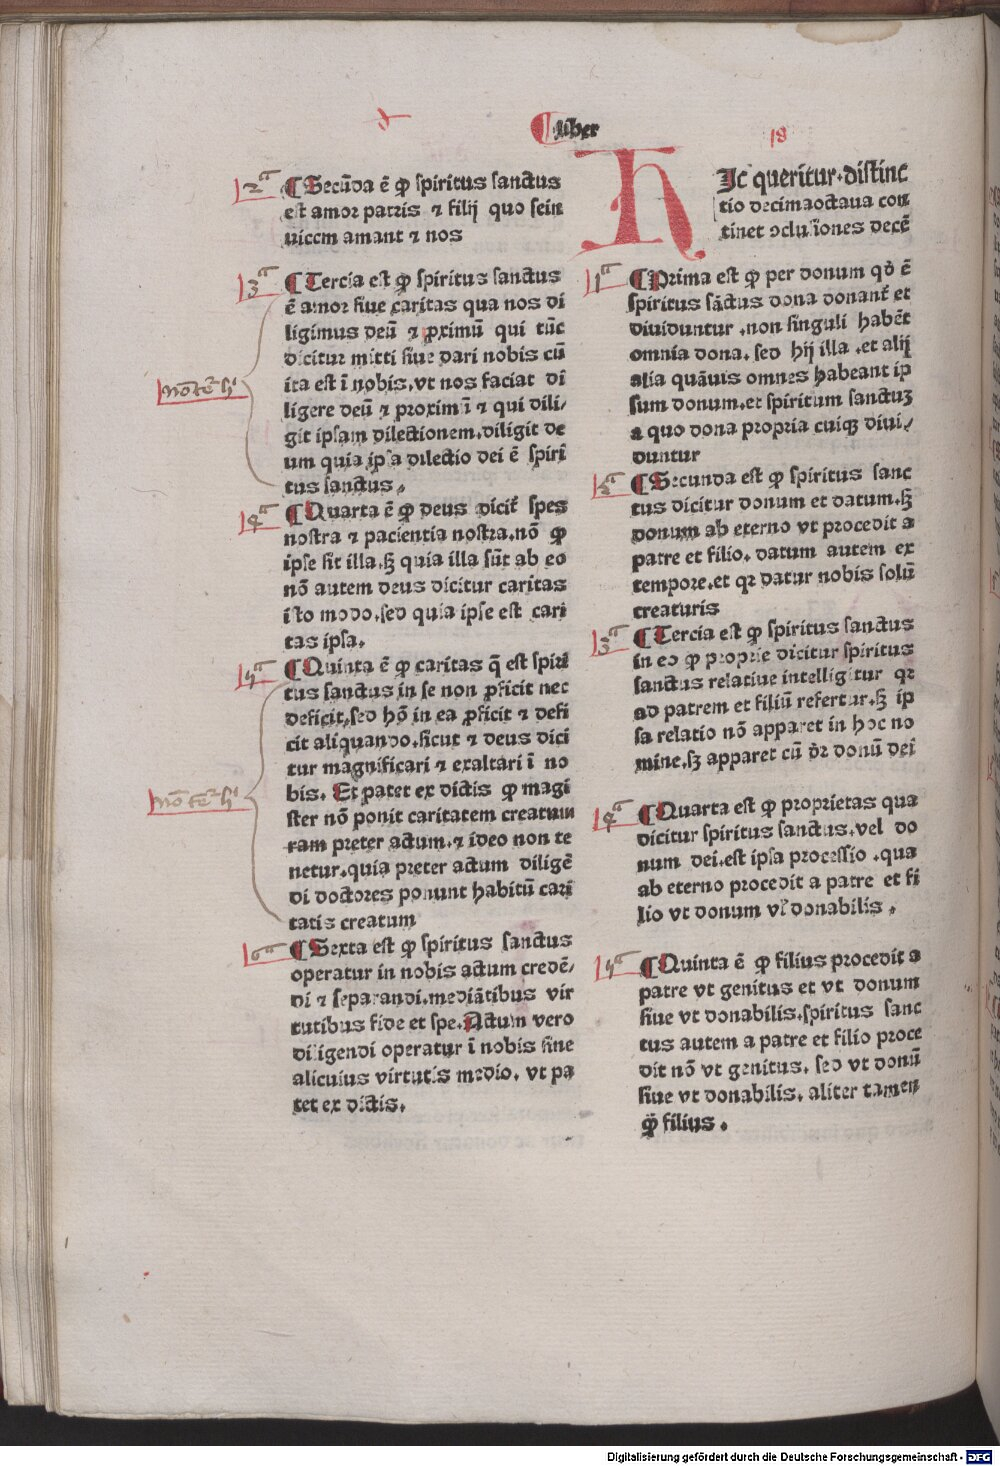 ¶ Liber
18
2ª
¶ Secūda ē ꝙ spiritus sanctus
est amor patris ⁊ filij quo sein
uicem amant ⁊ nos
3ª
¶ Tercia est ꝙ spiritus sanctus
ē amor siue caritas qua nos di
ligimus deū ⁊ ꝓximū qui tūc
dicitur mitti siue dari nobis cū
ita est ī nobis.vt nos faciat di
ligere deū ⁊ proximū ⁊ qui dili/
git ipsam dilectionem.diligit de
um quia ipsa dilectio dei ē spiri
tus sanctus.
4ª
¶ Quarta ē ꝙ deus dicit̄ spes
nostra ⁊ pacientia nostra.nō ꝙ
ipse sit illa.sꝫ quia illa sūt ab eo
nō autem deus dicitur caritas
isto modo.sed quia ipse est cari
tas ipsa.
5ª
¶ Quinta ē ꝙ caritas q̄ est spiri
tus sanctus in se non ꝓficit nec
deficit,sed hō in ea ꝓficit ⁊ defi
cit aliquando.sicut ⁊ deus dici
tur magnificari ⁊ exaltari ī no
bis. Et patet ex dictis ꝙ magi
ster nō ponit caritatem creatum
ram preter actum.⁊ ideo non te
netur.quia preter actum diligē
di doctores ponunt habitū cari
tatis creatum
6ª
¶ Sexta est ꝙ spiritus sanctus
operatur in nobis actum credē/
di ⁊ separandi.mediātibus vir
tutibus fide et spe.Actum vero
diligendi operatur ī nobis sine
alicuius virtutis medio. vt pa
tet ex dictis.
HJc queritur.distinc
tio decimaoctaua con
tinet ɔclusiones decē
1ª
¶ Prima est ꝙ per donum qd̄ ē
spiritus sāctus dona donant̄ et
diuiduntur .non singuli habēt
omnia dona. sed hij illa .et alij
alia quāuis omnes habeant ip
sum donum.et spiritum sanctuꝫ
a quo dona propria cuiqꝫ diui/
duntur
2ª
¶ Secunda est ꝙ spiritus sanc
tus dicitur donum et datum.sꝫ
donum ab eterno vt procedit a
patre et filio. datum autem ex
tempore.et qꝛ datur nobis solū
creaturis
3ª
¶ Tercia est ꝙ spiritus sanctus
in eo ꝙ proprie dicitur spiritus
sanctus relatiue intelligitur qꝛ
ad patrem et filiū refertur.sꝫ ip
sa relatio nō apparet in hoc no
mine.sꝫ apparet cū dr̄ donū dei
4ª
¶ Quarta est ꝙ proprietas qua
dicitur spiritus sanctus.vel do
num dei.est ipsa processio .qua
ab eterno procedit a patre et fi
lio vt donum vl̓ donabilis .
5ª
¶ Quinta ē ꝙ filius procedit a
patre vt genitus et vt donum
siue vt donabilis.spiritus sanc
tus autem a patre et filio proce
dit nō vt genitus. sed vt donū
siue vt donabilis. aliter tamen
qȝ̄ filius .
Digitalisierung gefördert durch die Deutsche Forschungsgemeinschaft - DFG